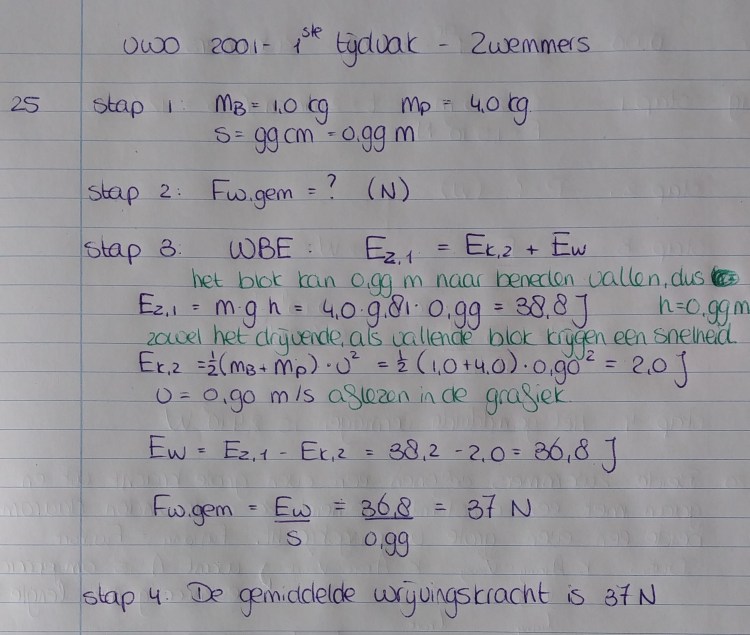 VWO 2001 - 1ste tijdvak - Zwemmers
25 stap 1: mB = 1,0 kg mp = 4,0 kg
s = 99 cm = 0,99 m
stap 2: Fw.gem = ? (N)
stap 3: WBE: Ez,1 = Ek,2 + Ew
het blok kan 0,99 m naar beneden vallen, dus
Ez,1 = m·g·h = 4,0·9,81·0,99 = 38,8 J h=0,99 m
zowel het drijvende, als vallende blok krijgen een snelheid
Ek,2 = ½(mB + mp)·v² = ½(1,0+4,0)·0,90² = 2,0 J
v = 0,90 m/s aflezen in de grafiek
Ew = Ez,1 - Ek,2 = 38,2 - 2,0 = 36,8 J
Fw.gem = Ew/s = 36,8/0,99 = 37 N
stap 4: De gemiddelde wrijvingskracht is 37 N